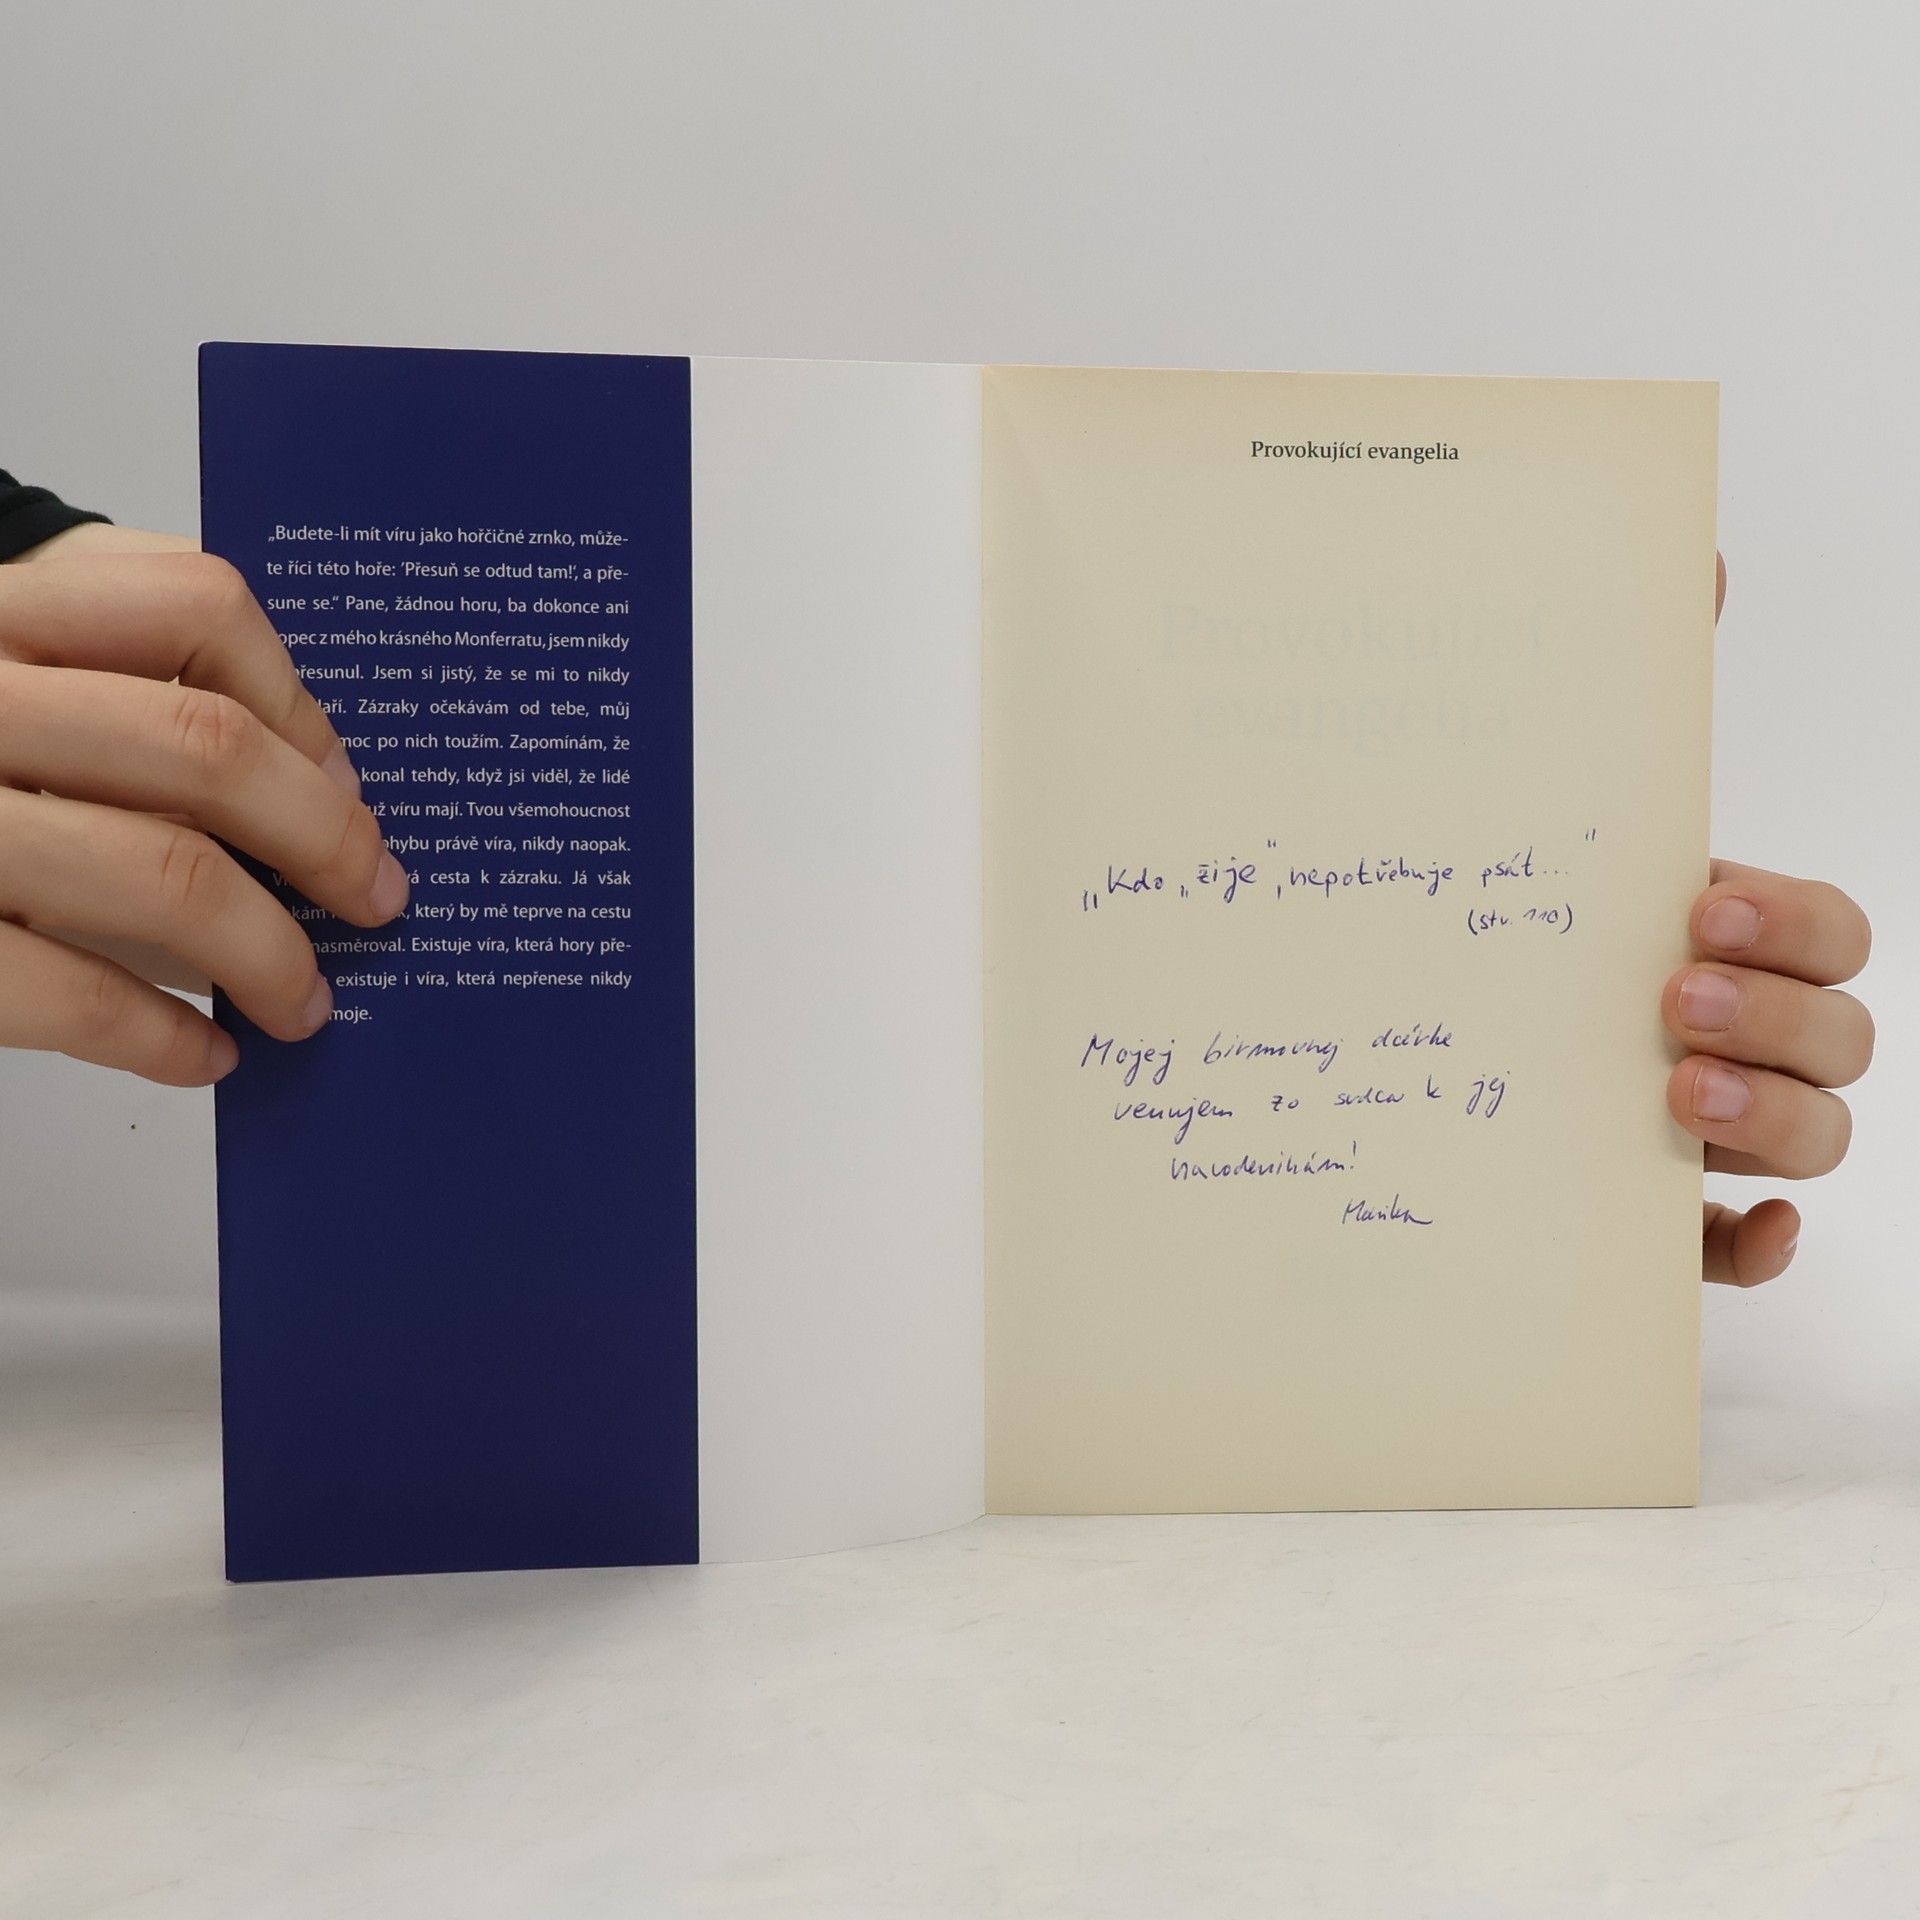 „Budete-li mít víru jako hořčičné zrnko, může-
te říci této hoře: ’Přesuň se odtud tam!‘, a pře-
sune se.“ Pane, žádnou horu, ba dokonce ani
opec z mého krásného Monferratu, jsem nikdy
přesunul. Jsem si jistý, že se mi to nikdy
daří. Zázraky očekávám od tebe, můj
moc po nich toužím. Zapomínám, že
konal tehdy, když jsi viděl, že lidé
už víru mají. Tvou všemohoucnost
ohybu právě víra, nikdy naopak.
cesta k zázraku. Já však
který by mě teprve na cestu
nasměroval. Existuje víra, která hory pře-
existuje i víra, která nepřenese nikdy
moje.
Provokující evangelia
„Kdo „žije“, nepotřebuje psát..."
(str. 110)
Mojej birmovnej dcérke
venujem zo srdca k jej
narodeninám!
Marika